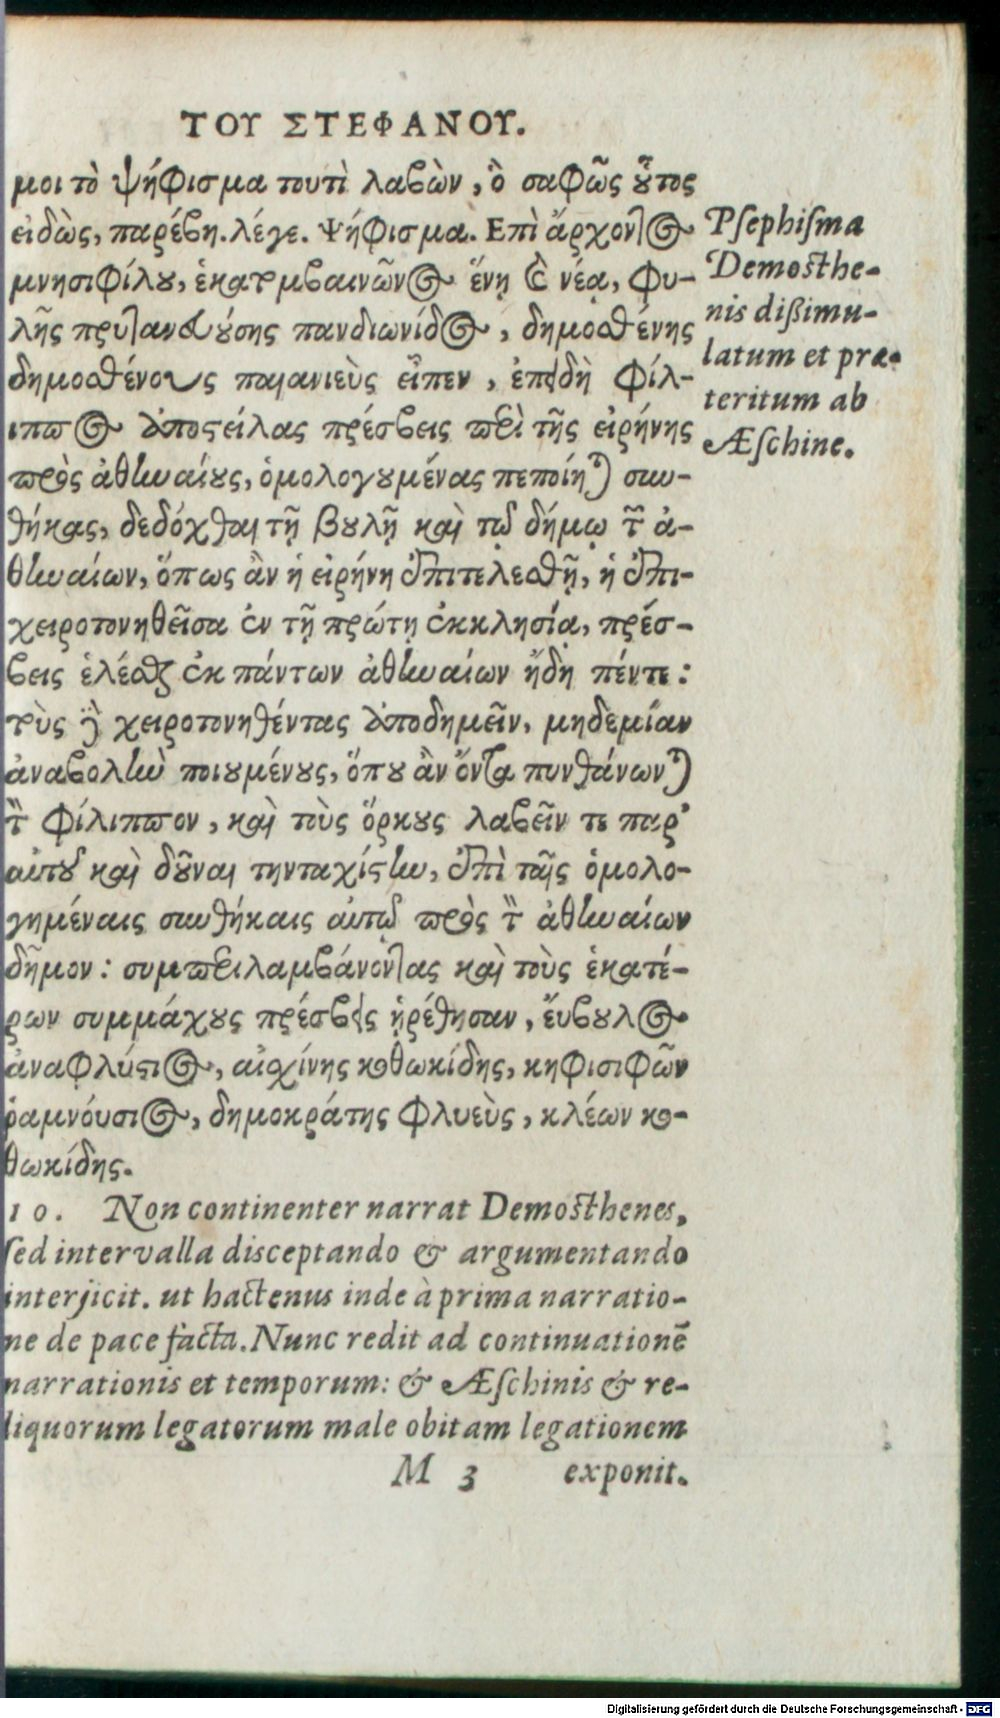 ΤΟΥ ΣΤΕΦΑΝΟΥ.
μοι τὸ ψήφισμα τουτὶ λαβὼν, ὃ σαφῶς οὗτος
εἰδὼς, παρέβη. λέγε. Ψήφισμα. Επὶ ἄρχοντος
μνησιφίλου, ἑκατομβαινῶνος ἕνῃ καὶ νέᾳ, φυ-
λῆς πρυτανευούσης πανδιωνίδος, δημοσθένης
δημοσθένους παιανιεὺς εἶπεν, ἐπειδὴ φίλ-
ιππος ἀποστείλας πρέσβεις περὶ τῆς εἰρήνης
πρὸς ἀθηναίους, ὁμολογουμένας πεποίηται συν-
θήκας, δεδόχθαι τῇ βουλῇ καὶ τῷ δήμῳ τῶν ἀ-
θηναίων, ὅπως ἂν ἡ εἰρήνη ἐπιτελεσθῇ, ἡ ἐπι-
χειροτονηθεῖσα ἐν τῇ πρώτῃ ἐκκλησίᾳ, πρέσ-
βεις ἑλέσθαι ἐκ πάντων ἀθηναίων ἤδη πέντε:
τοὺς δὲ χειροτονηθέντας ἀποδημεῖν, μηδεμίαν
ἀναβολὴν ποιουμένους, ὅπου ἂν ὄντα πυνθάνωνται
τὸν φίλιππον, καὶ τοὺς ὅρκους λαβεῖν τε παρ'
αὐτοῦ καὶ δοῦναι τηνταχίστην, ἐπὶ ταῖς ὁμολο-
γημέναις συνθήκαις αὐτῷ πρὸς τὸν ἀθηναίων
δῆμον: συμπεριλαμβάνοντας καὶ τοὺς ἑκατέ-
ρων συμμάχους πρέσβεις ᾑρέθησαν, ἔυβουλος
ἀναφλύστιος, αἰσχίνης κοθωκίδης, κηφισιφῶν
ῥαμνούσιος, δημοκράτης φλυεὺς, κλέων κο-
θωκίδης.
Psephisma
Demosthe-
nis dißimu-
latum et præ-
teritum ab
Æschine.
10. Non continenter narrat Demosthenes,
sed intervalla disceptando & argumentando
interjicit. ut hactenus inde à prima narratio-
ne de pace facta. Nunc redit ad continuationē
narrationis et temporum: & Æschinis & re-
liquorum legatorum male obitam legationem
M 3 exponit.
Digitalisierung gefördert durch die Deutsche Forschungsgemeinschaft - DFG